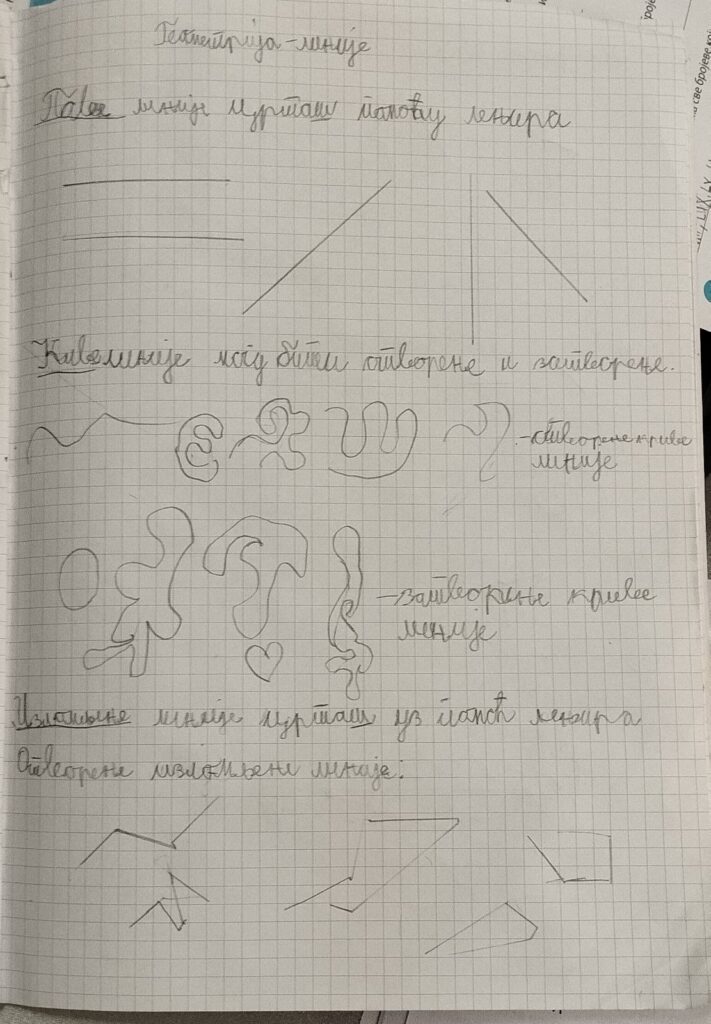 Геометрија-линије
Паве линије црташ помоћу лењира
Кивелиније могу бити отворене и затворене.
-отворене криве
линије
-затворене криве
линије
Изломљене линије црташ уз помоћ лењира
Отворене изломљене линије:
све бројеве кој